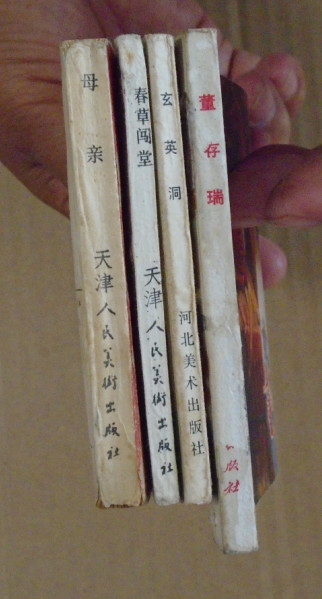 母亲
天津人民美術出版社
春草闯堂
天津人民美術出版社
玄英洞
河北美术出版社
董存瑞
版社